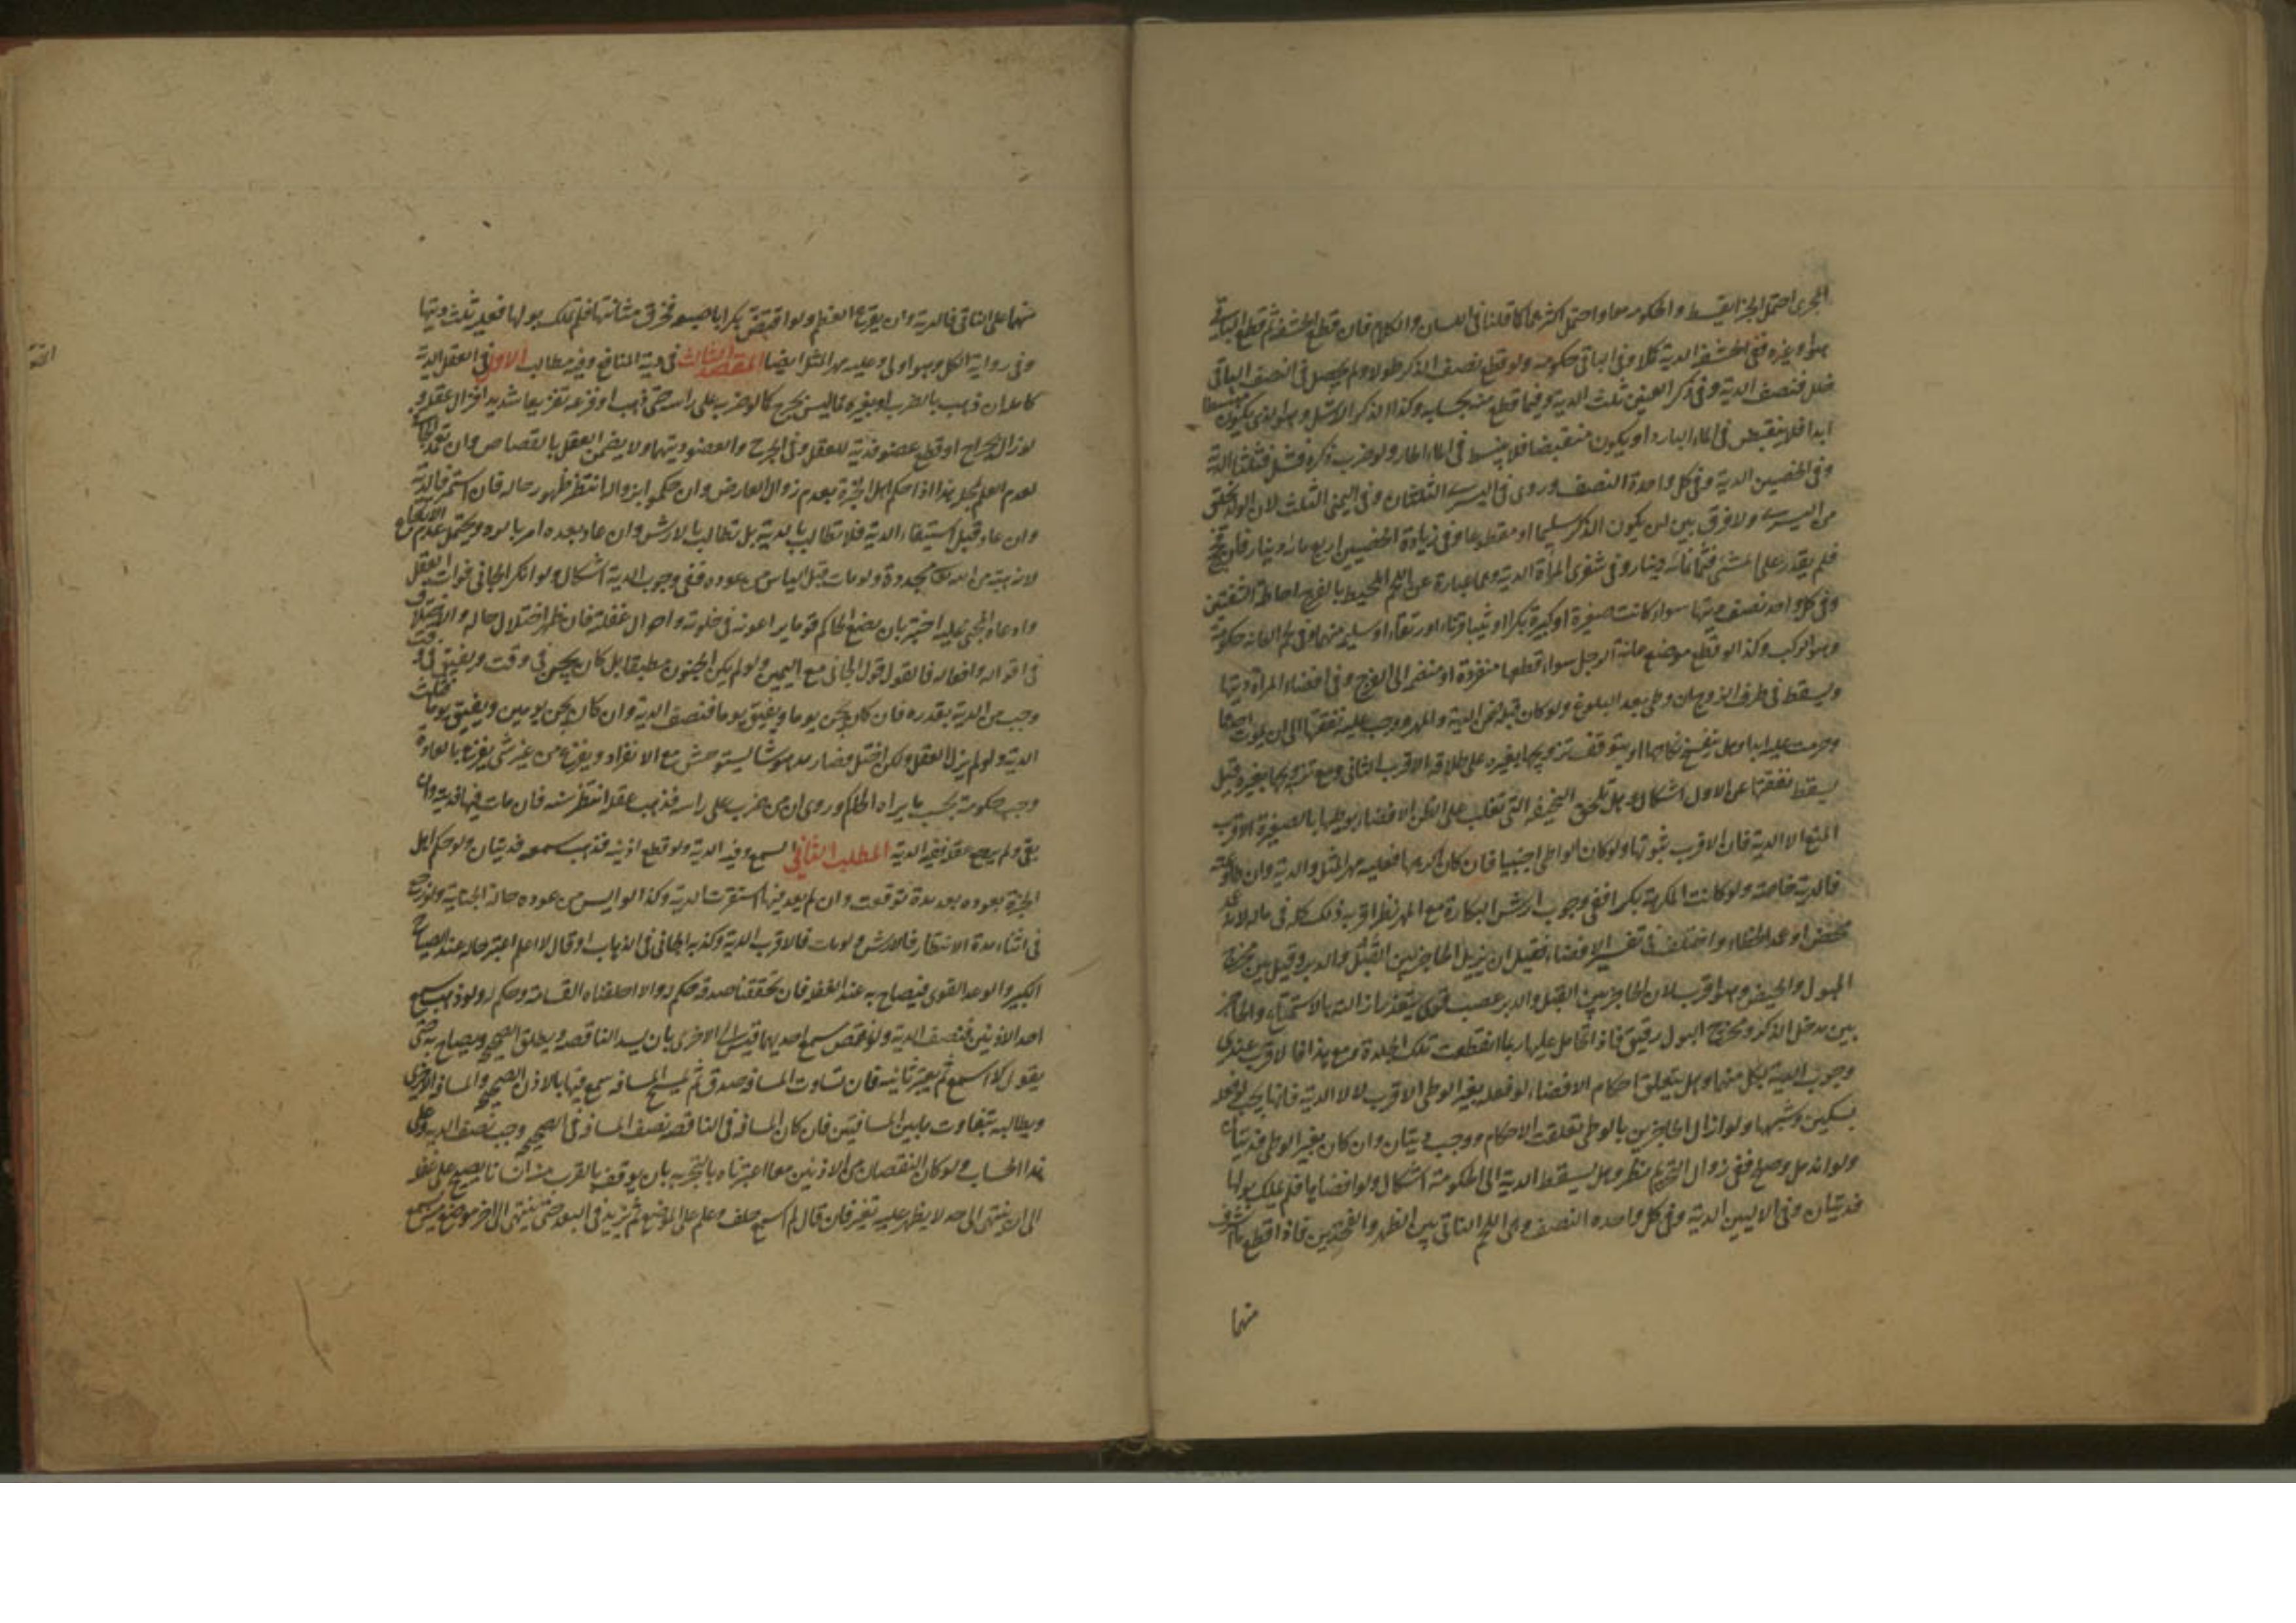 المجرى احتمل الجزا بقسط والحكومه معا واحتمل اكثرهما كما قلنا فى اللسان والكلام فان قطع الحشفه ثم قطع الباقى
هو او غيره ففى الحشفه الدية كملا وفى الباقى حكومه ولو قطع نصف الذكر طولا ولم يحصل فى النصف الباقى
خلل فنصف الدية وفى ذكر العنين ثلث الدية وفيما قطع منه بحسابه وكذا الذكر الاشل وهو الذى يكون منبسطا
ابدا فلا ينقبض فى الماء البارد او يكون منقبضا فلا ينبسط فى الماء الحار ولو ضرب ذكره فشل فثلثا الدية
وفى الخصيين الدية وفى كل واحدة النصف وروى فى اليسرى الثلثان وفى اليمنى الثلث لان الولد يخلق
من اليسرى ولا فرق بين ان يكون الذكر سليما او مقطوعا وفى زيادة الخصيين اربع مائة دينار فان فحج
فلم يقدر على المشى فثمانمائة دينار وفى شفرى المرأة الدية وهما عبارة عن اللحم المحيط بالفرج احاطة الشفتين
وفى كل واحد نصف ديتها سواء كانت صغيرة او كبيرة بكرا او ثيبا قرناء او رتقاء او سليمه منهما وفى العانه حكومة
وهو الركب وكذا لو قطع موضع عانة الرجل سواء قطعها منفردة او منضمه الى الفرج وفى افضاء المرأة ديتها
ويسقط فى طرف الزوج ان وطى بعد البلوغ ولو كان قبله ضمن الدية والمهر ووجب عليه نفقتها الى ان يموت احدهما
وحرمت عليه ابدا وهل ينفسخ نكاحها او يتوقف تزويجها بغيره على طلاقه الاقرب الثانى ومع تزويجها بغيره قيل
يسقط نفقتها عن الاول اشكال وهل تلحق النحيفه التى تغلب على الظن الافضاء بوطيها بالصغيرة الاقرب
المنع الا الدية فان الاقرب ثبوتها ولو كان الواطى اجنبيا فان كان اكرهها فعليه مهر المثل والدية وان طاوعته
فالدية خاصة ولو كانت المكرهة بكرا ففى وجوب ارش البكارة مع المهر نظر اقربه ذلك كله فى ماله لانه عمد
محض او عمد الخطاء واختلف فى تفسير الافضاء فقيل ان يزيل الحاجز بين القبل والدبر وقيل بين مخرج
البول والحيض وهو اقرب لان الحاجز بين القبل والدبر عصب قوى يتعذر ازالته بالاستمتاع والحاجز
بين مدخل الذكر ومخرج البول رقيق فاذا تحامل عليها ربما انقطعت تلك الجلدة ومع هذا فالاقرب عندى
وجوب الدية بكل منهما وهل يتعلق احكام الافضاء لو فعله بغير الوطى الاقرب لا الا الدية فانها يجب لو فعله
بسكين وشبهها ولو ازال الحاجزين بالوطى تعلقت الاحكام ووجب ديتان وان كان بغير الوطى فديتان
ولو اندمل وصلح ففى زوال التحريم نظر وهل يسقط الدية الى الحكومة اشكال ولو افضاها فلم يملك بولها
فديتان وفى الاليين الدية وفى كل واحده النصف وهى اللحم الناتى بين الظهر والفخذين فاذا قطع ما اشرف
منها
منهما على الناتى فالدية وان لم يقرع العظم ولو اقتض بكرا باصبعه فخرق مثانتها فلم تملك بولها فعليه ثلث ديتها
وفى رواية الكل وهو اولى وعليه مهر المثل ايضا المقصد الثالث فى دية المنافع وفيه مطالب الاول فى العقل الدية
كامله ان ذهب بالضرب او بغيره مما ليس بجرح كما لو ضرب على راسه حتى ذهب او فزعه تفزيعا شديدا فزال عقله
لو زال بجراح او قطع عضو فدية للعقل وفى الجرح والعضو ديتهما ولا يضمن العقل بالقصاص وان تعمد الجانى
لعدم العلم بمحله هذا اذا حكم اهل الخبرة بعدم زوال العارض وان حكموا بزواله انتظر ظهور حاله فان استمر فالدية
وان عاد قبل استيفاء الدية فلا تطالب بالدية بل تطالب بالارش وان عاد بعده امر بالرد ويحتمل عدم الارتجاع
لانه هبة من الله مجددة ولو مات قبل الياس من عوده ففى وجوب الدية اشكال ولو انكر الجانى فوات العقل
وادعاه المجنى عليه اختبر بان يضع الحاكم قوما يراعونه فى خلوته واحوال غفلته فان ظهر اختلال حاله والاختلاف
فى اقواله وافعاله فالقول قول الجانى مع اليمين ولو لم يكن الجنون مطبقا بل كان يجن فى وقت ويفيق فى وقت
وجب من الدية بقدره فان كان يجن يوما ويفيق يوما فنصف الدية وان كان يجن يومين ويفيق يوما فثلث
الدية ولو لم يزل العقل ولكن اختل فصار مدهوشا يستوحش مع الانفراد ويفزع من غير شى يفزع بالعادة
وجب حكومة بحسب ما يراه الحاكم وروى ان من ضرب على راسه فذهب عقله انتظر سنه فان مات فيها فدية وان
بقى ولم يرجع عقله ففيه الدية المطلب الثانى السمع وفيه الدية ولو قطع اذنه فذهب سمعه فديتان ولو حكم اهل
الخبرة بعوده بعد مدة توقعت وان لم يعد فيها استقرت الدية وكذا لو ايس من عوده حالة الجناية ولو رجع
فى اثناء مدة الانتظار فالارش ولو مات فالاقرب الدية ولو كذبه الجانى فى الذهاب او قال لا اعلم اعتبر حاله عند الصياح
الكبير والرعد القوى فيصاح به عند الغفله فان تحققنا صدقه حكم له والا احلفناه القسامة وحكم له ولو ذهب سمع
احد الاذنين فنصف الدية ولو نقص سمع احديهما قيس الى الاخرى بان يسد الناقصه ويطلق الصحيحه ويصاح به حتى
يقول لا اسمع ثم يعتبر ثانيه فان تساوت المسافه صدق ثم يمسح المسافه سمع فيها بالاذن الصحيحه والمسافه الاخرى
ويطالبه بتفاوت ما بين المسافتين فان كان المسافه فى الناقصه نصف المسافه فى الصحيحه وجب نصف الدية وعلى
هذا الحساب ولو كان النقصان من الاذنين معا اعتبرناه بالتجربه بان يوقف بالقرب منه انسانا يصيح على غفله
الى ان ينتهى الى حد لا يظهر عليه تغير فان قال لم اسمع حلف وعلم على الموضع ثم يزيد فى البعد حتى ينتهى الى اخر موضع يسمع